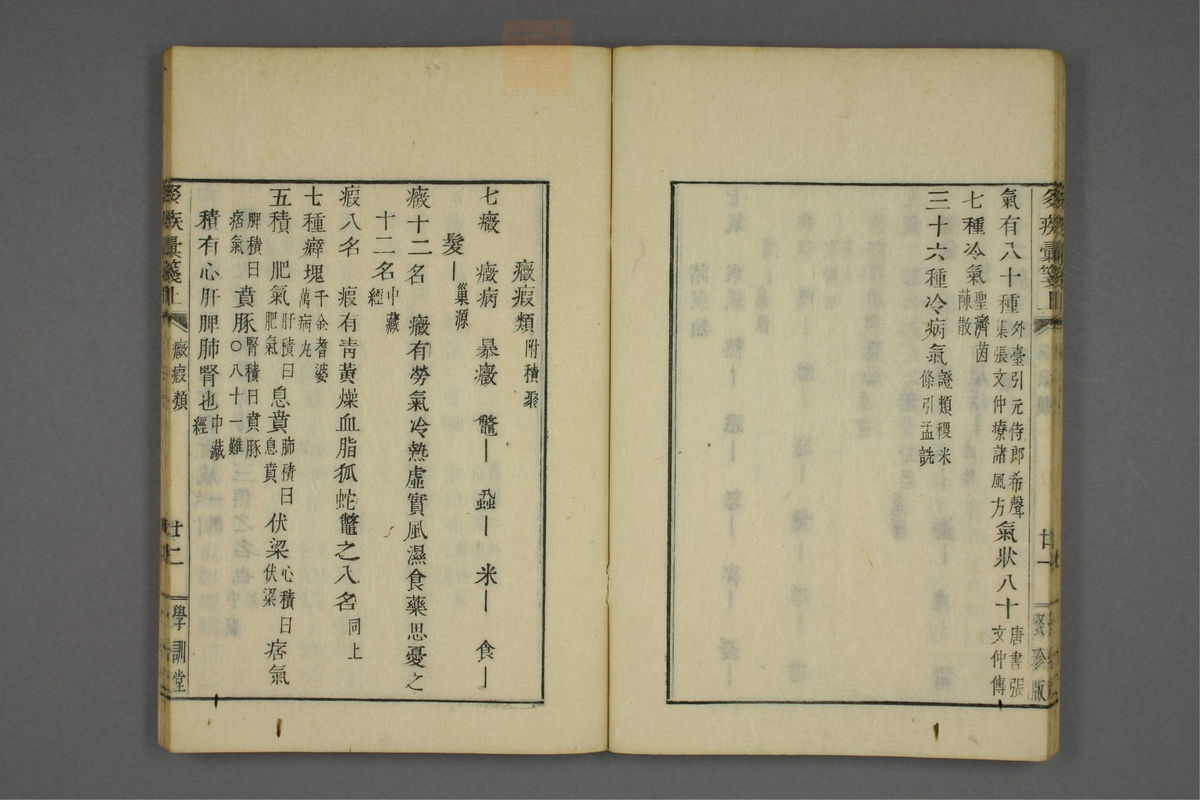 氣有八十種外臺引元侍郎希聲集張文仲療諸風方氣狀八十唐書張文仲傳
七種冷氣聖濟茵蔯散
三十六種冷病氣證類稷米條引孟詵
疾彙箋上
廿一
版
癥瘕類附積聚
七癥　癥病　暴癥　鼈｜　蝨｜　米｜　食｜
髮｜巢源
癥十二名　癥有勞氣冷熱虛實風濕食藥思憂之
十二名中藏經
瘕八名　瘕有靑黃燥血脂狐蛇鼈之八名同上
七種癖塊千金耆婆萬病丸
五積　肥氣肝積曰肥氣息賁肺積曰息賁伏梁心積曰伏梁痞氣
脾積曰痞氣賁豚腎積曰賁豚〇八十一難
積有心肝脾肺腎也中藏經
疾彙箋上
癥瘕類
廿二
學訓堂